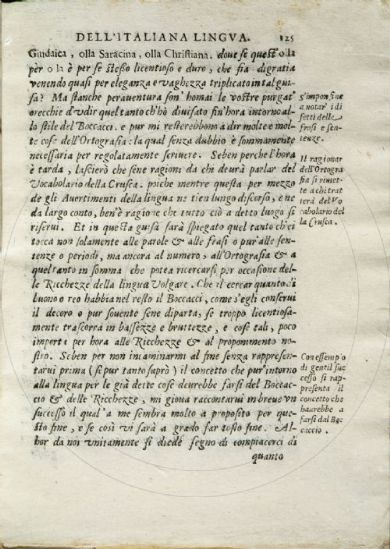 DELL'ITALIANA LINGVA. 125
Giudaica, olla Saracina, olla Christiana. doue se quest' o la
pèr o la è per se stesso licentioso e duro, che fia di gratia
venendo quasi per eleganza e vaghezza triplicato in tal gui-
sa? Ma stanche perauentura son' homai le vostre purgat'
orecchie d'vdir quel tanto ch'hò diuisato fin'hora intorno al-
lo stile del Boccacci. e pur mi resterebbono a dir molte e mol-
te cose dell'Ortografia: la qual senza dubbio è sommamente
necessaria per regolatamente scriuere. Seben perche l'hora
è tarda, lascierò che sene ragioni da chi deurà parlar del
Vocabolario della Crusca. poiche mentre questa per mezzo
de gli Auertimenti della lingua ne tien lungo discorso, e ne
dà largo conto, ben'è ragione che tutto ciò a detto luogo si
riserui. Et in questa guisa sarà spiegato quel tanto che ci
tocca non solamente alle parole & alle frasi o pur'alle sen-
tenze o periodi, ma ancora al numero, all'Ortografia & a
quel tanto in somma che potea ricercarsi per occasione del-
le Ricchezze della lingua Volgare. Che il cercar quanto di
buono e reo habbia nel resto il Boccacci, come s'egli conserui
il decoro o pur souente sene diparta, se troppo licentiosa-
mente trascorra in bassezze e bruttezze, e cose tali, poco
importa per hora alle Ricchezze & al proponimento no-
stro. Seben per non incaminarmi al fine senza rappresen-
tarui prima (se pur tanto saprò) il concetto che pur'intorno
alla lingua per le già dette cose deurebbe farsi del Boccac-
cio & delle Ricchezze, mi gioua raccontarui in breue vn
successo il qual'a me sembra molto a proposito per que-
sto fine, e se così vi sarà a grado far tosto fine. Al-
hor da noi vnitamente si diede segno di compiacerci di
quanto
S'impon fine
a notar' i di
fetti delle
frasi e sen-
tenze.
Il ragionar
dell'Ortogra
fia si rimet-
te a chi trat
terà del Vo
cabolario del
la Crusca.
Con essempio
di gentil suc
cesso si rap-
presenta il
concetto che
haurebbe a
farsi dal Boc
caccio.